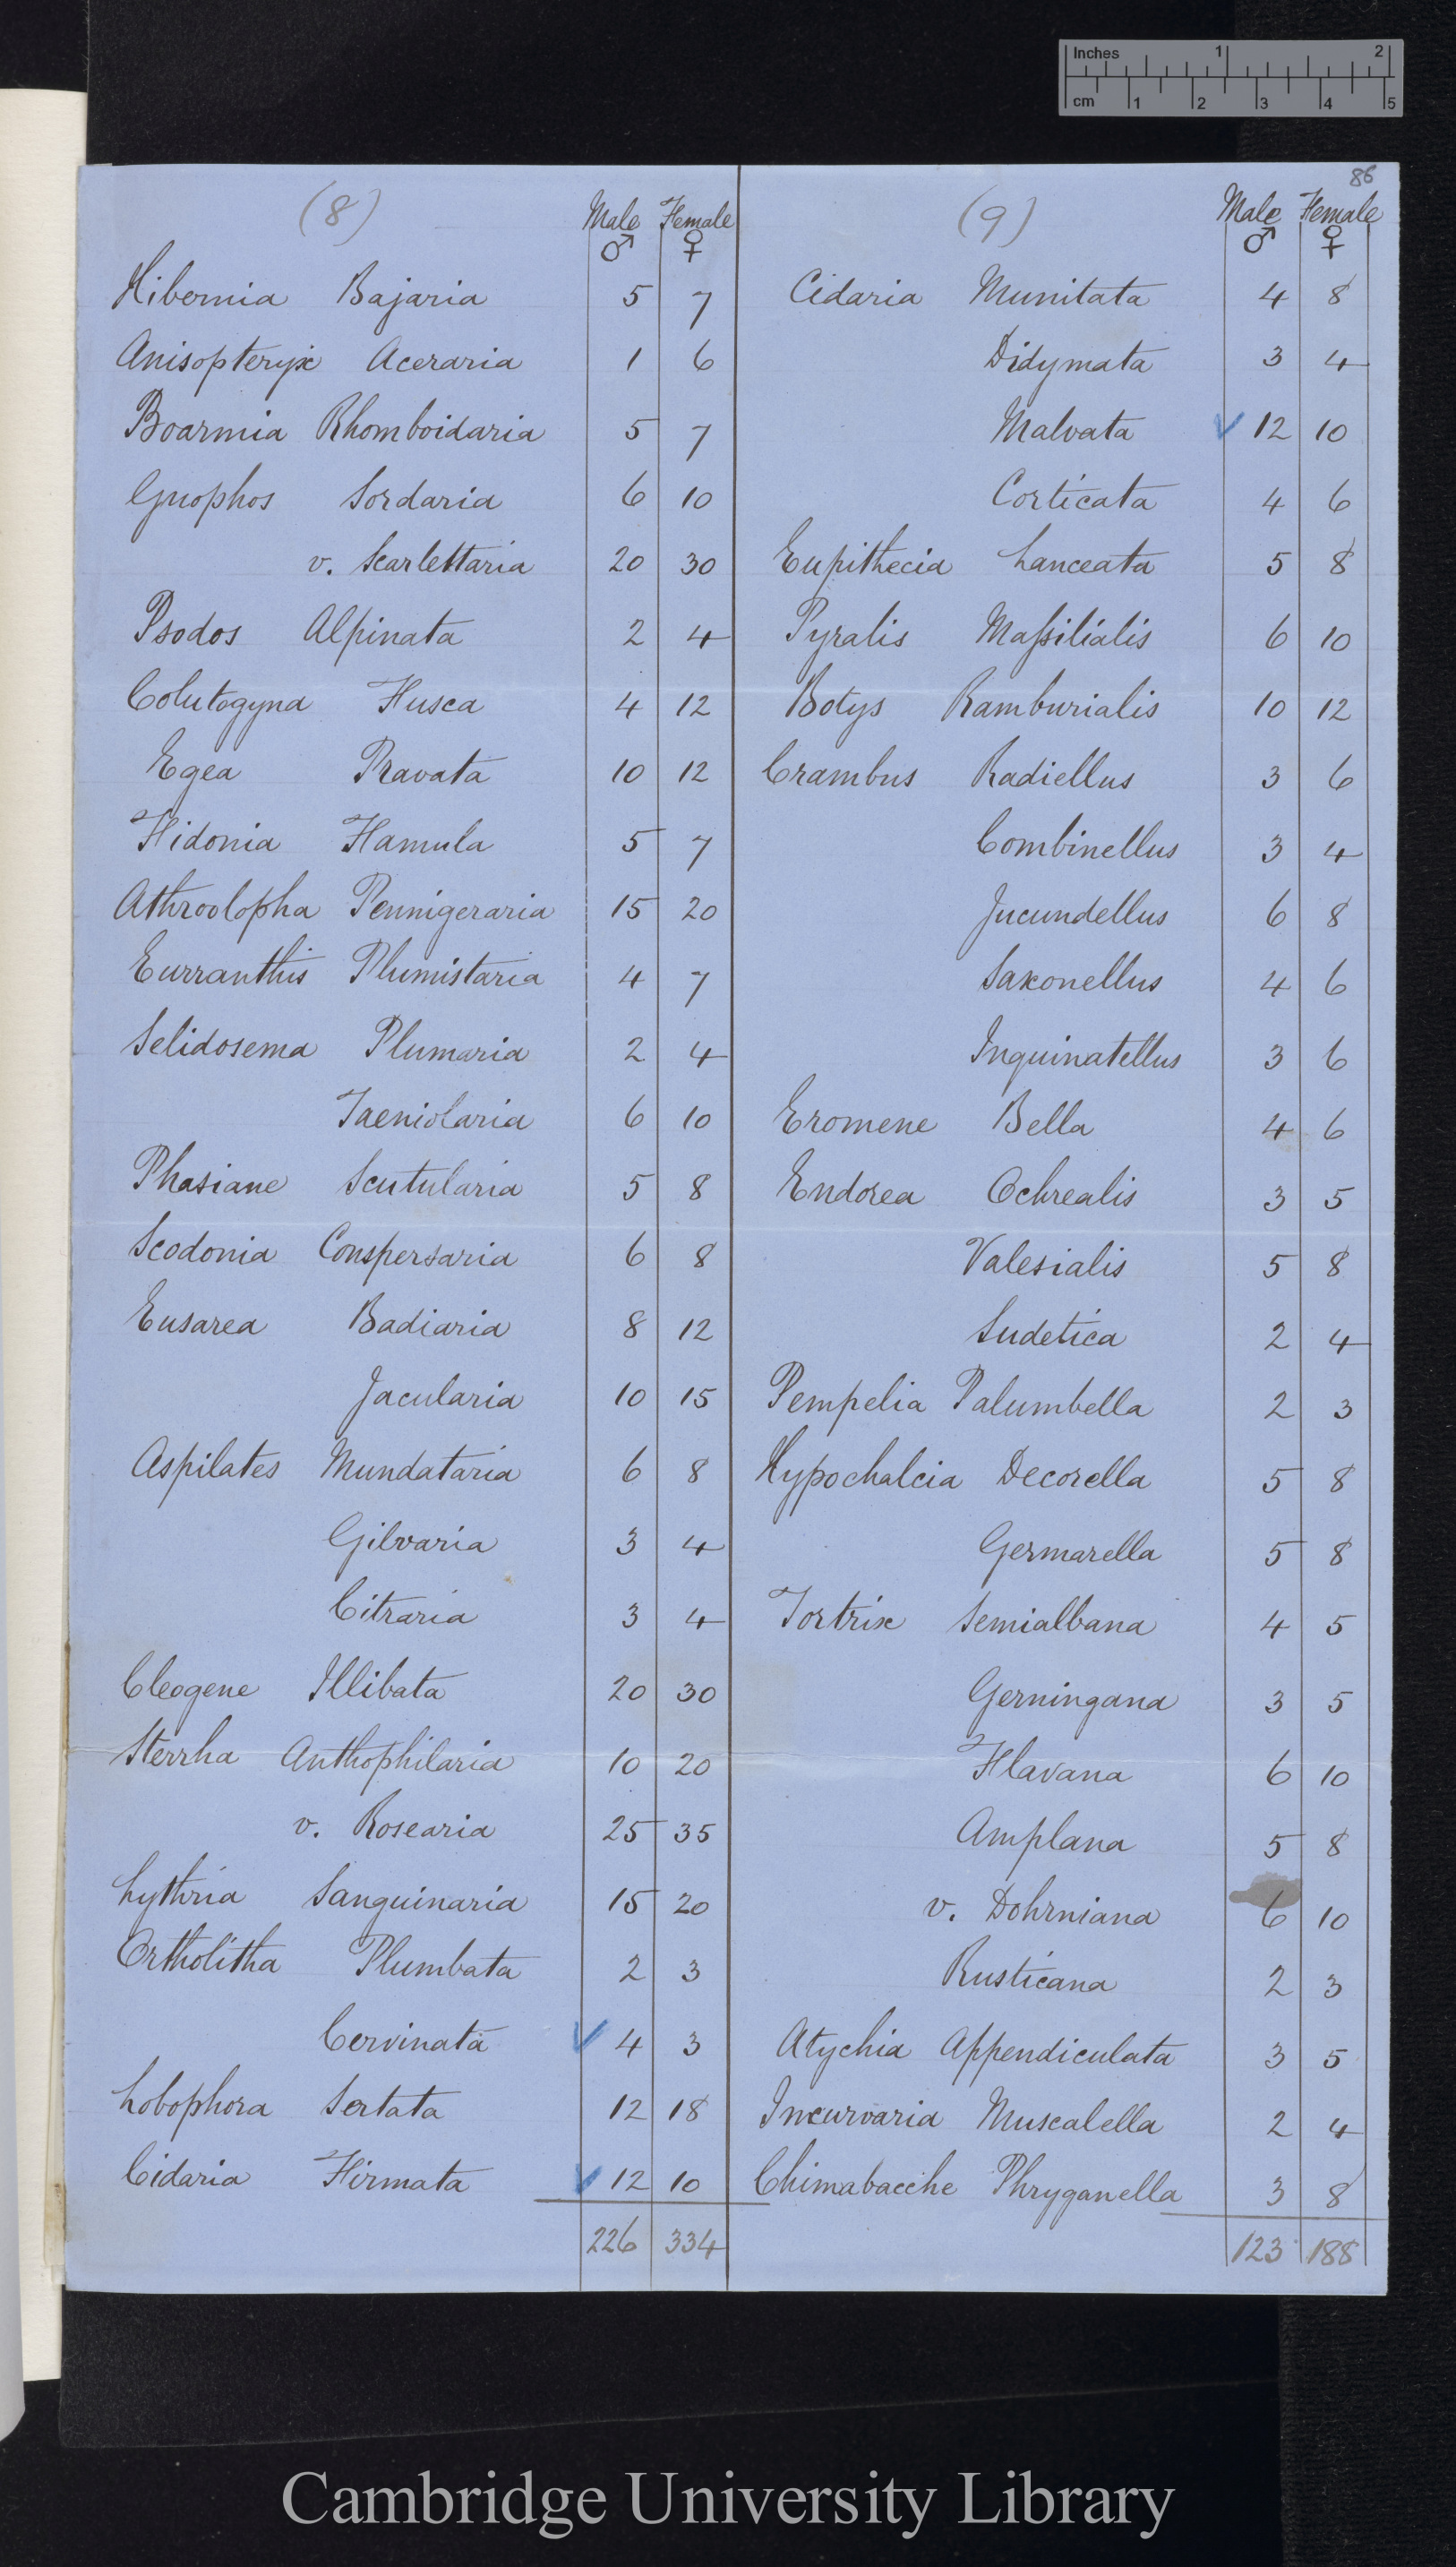 Inches 1 2
cm 1 2 3 4 5
86
(8) Male Female
♂ ♀
Hibernia Bajaria 5 7
Anisopteryx Aceraria 1 6
Boarmia Rhomboidaria 5 7
Gnophos Sordaria 6 10
v. Scarlettaria 20 30
Psodos Alpinata 2 4
Colutogyna Fusca 4 12
Egea Pravata 10 12
Fidonia Famula 5 7
Athroolopha Pennigeraria 15 20
Eurranthis Plumistaria 4 7
Selidosema Plumaria 2 4
Taeniolaria 6 10
Phasiane Scutularia 5 8
Scodonia Conspersaria 6 8
Eusarea Badiaria 8 12
Jacularia 10 15
Aspilates Mundataria 6 8
Gilvaria 3 4
Citraria 3 4
Cleogene Illibata 20 30
Sterrha Anthophilaria 10 20
v. Rosearia 25 35
Lythria Sanguinaria 15 20
Ortholitha Plumbata 2 3
Cervinata ✓ 4 3
Lobophora Sertata 12 18
Cidaria Firmata ✓ 12 10
226 334
(9) Male Female
♂ ♀
Cidaria Munitata 4 8
Didymata 3 4
Malvata ✓ 12 10
Corticata 4 6
Eupithecia Lanceata 5 8
Pyralis Maſsilialis 6 10
Botys Ramburialis 10 12
Crambus Radiellus 3 6
Combinellus 3 4
Jucundellus 6 8
Saxonellus 4 6
Inquinatellus 3 6
Eromene Bella 4 6
Endorea Ochrealis 3 5
Valesialis 5 8
Sudetica 2 4
Pempelia Palumbella 2 3
Hypochalcia Decorella 5 8
Germarella 5 8
Tortrix Semialbana 4 5
Gerningana 3 5
Flavana 6 10
Amplana 5 8
v. Dohrniana 6 10
Rusticana 2 3
Atychia Appendiculata 3 5
Incurvaria Muscalella 2 4
Chimabacche Phryganella 3 8
123 188
Cambridge University Library